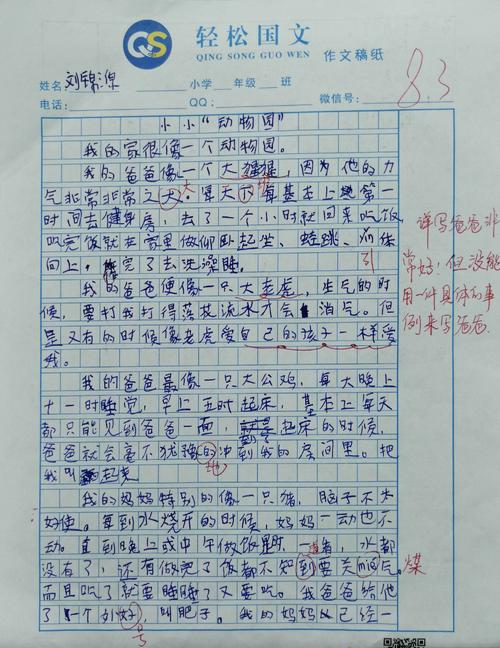 QS
轻松国文
QING SONG GUO WEN
作文稿纸
姓名 小学 年级 班
电话: QQ: 微信号:
83
小小“动物园”
我的家很像一个动物园。
我的爸爸像一个大猩猩,因为他的力
气非常非常之大。每天下班基本上是第一
时间去健身房,去了一个小时就回来吃饭
吃完饭就在家里做仰卧起坐、蛙跳、体
向上,完了去洗澡睡。
引
我的爸爸更像一只大老虎,生气的时
候,要打我打得落花流水才会消气。但
是又有的时候像老虎爱自己的孩子一样爱
我。
我的爸爸最像一只大公鸡,每天晚上
十一时睡觉,早上五时起床,基本上每天
都只能见到爸爸一面,就是起床的时候,
爸爸就会毫不犹豫的冲到我的房间里。把
地
我叫起免
我的妈妈特别的像一只猪,脑子不太
好使。每到水烧开的时候,妈妈一动也不
动。直到晚上或中午做饭时一看,水都
没有了,还有做完了饭都不知到要关mei气。
道
煤
而且吃了就要睡睡了又要吃。我爸爸给他
了一个外好,叫肥子。我的妈妈已经一
号
详写爸爸非
常好,但没能
用一件具体的事
例来写爸爸